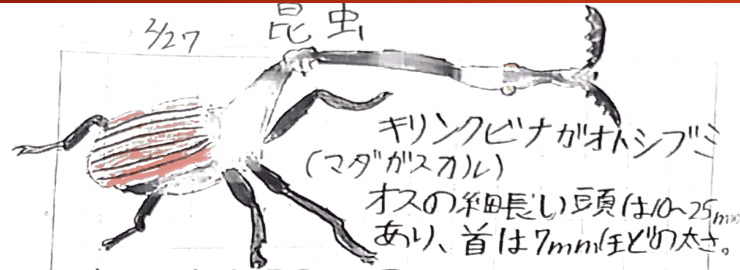 2/27
昆虫
キリンクビナガオトシブミ
(マダガスカル)
オスの細長い頭は10~25mm
あり、首は7mmほどの太さ。